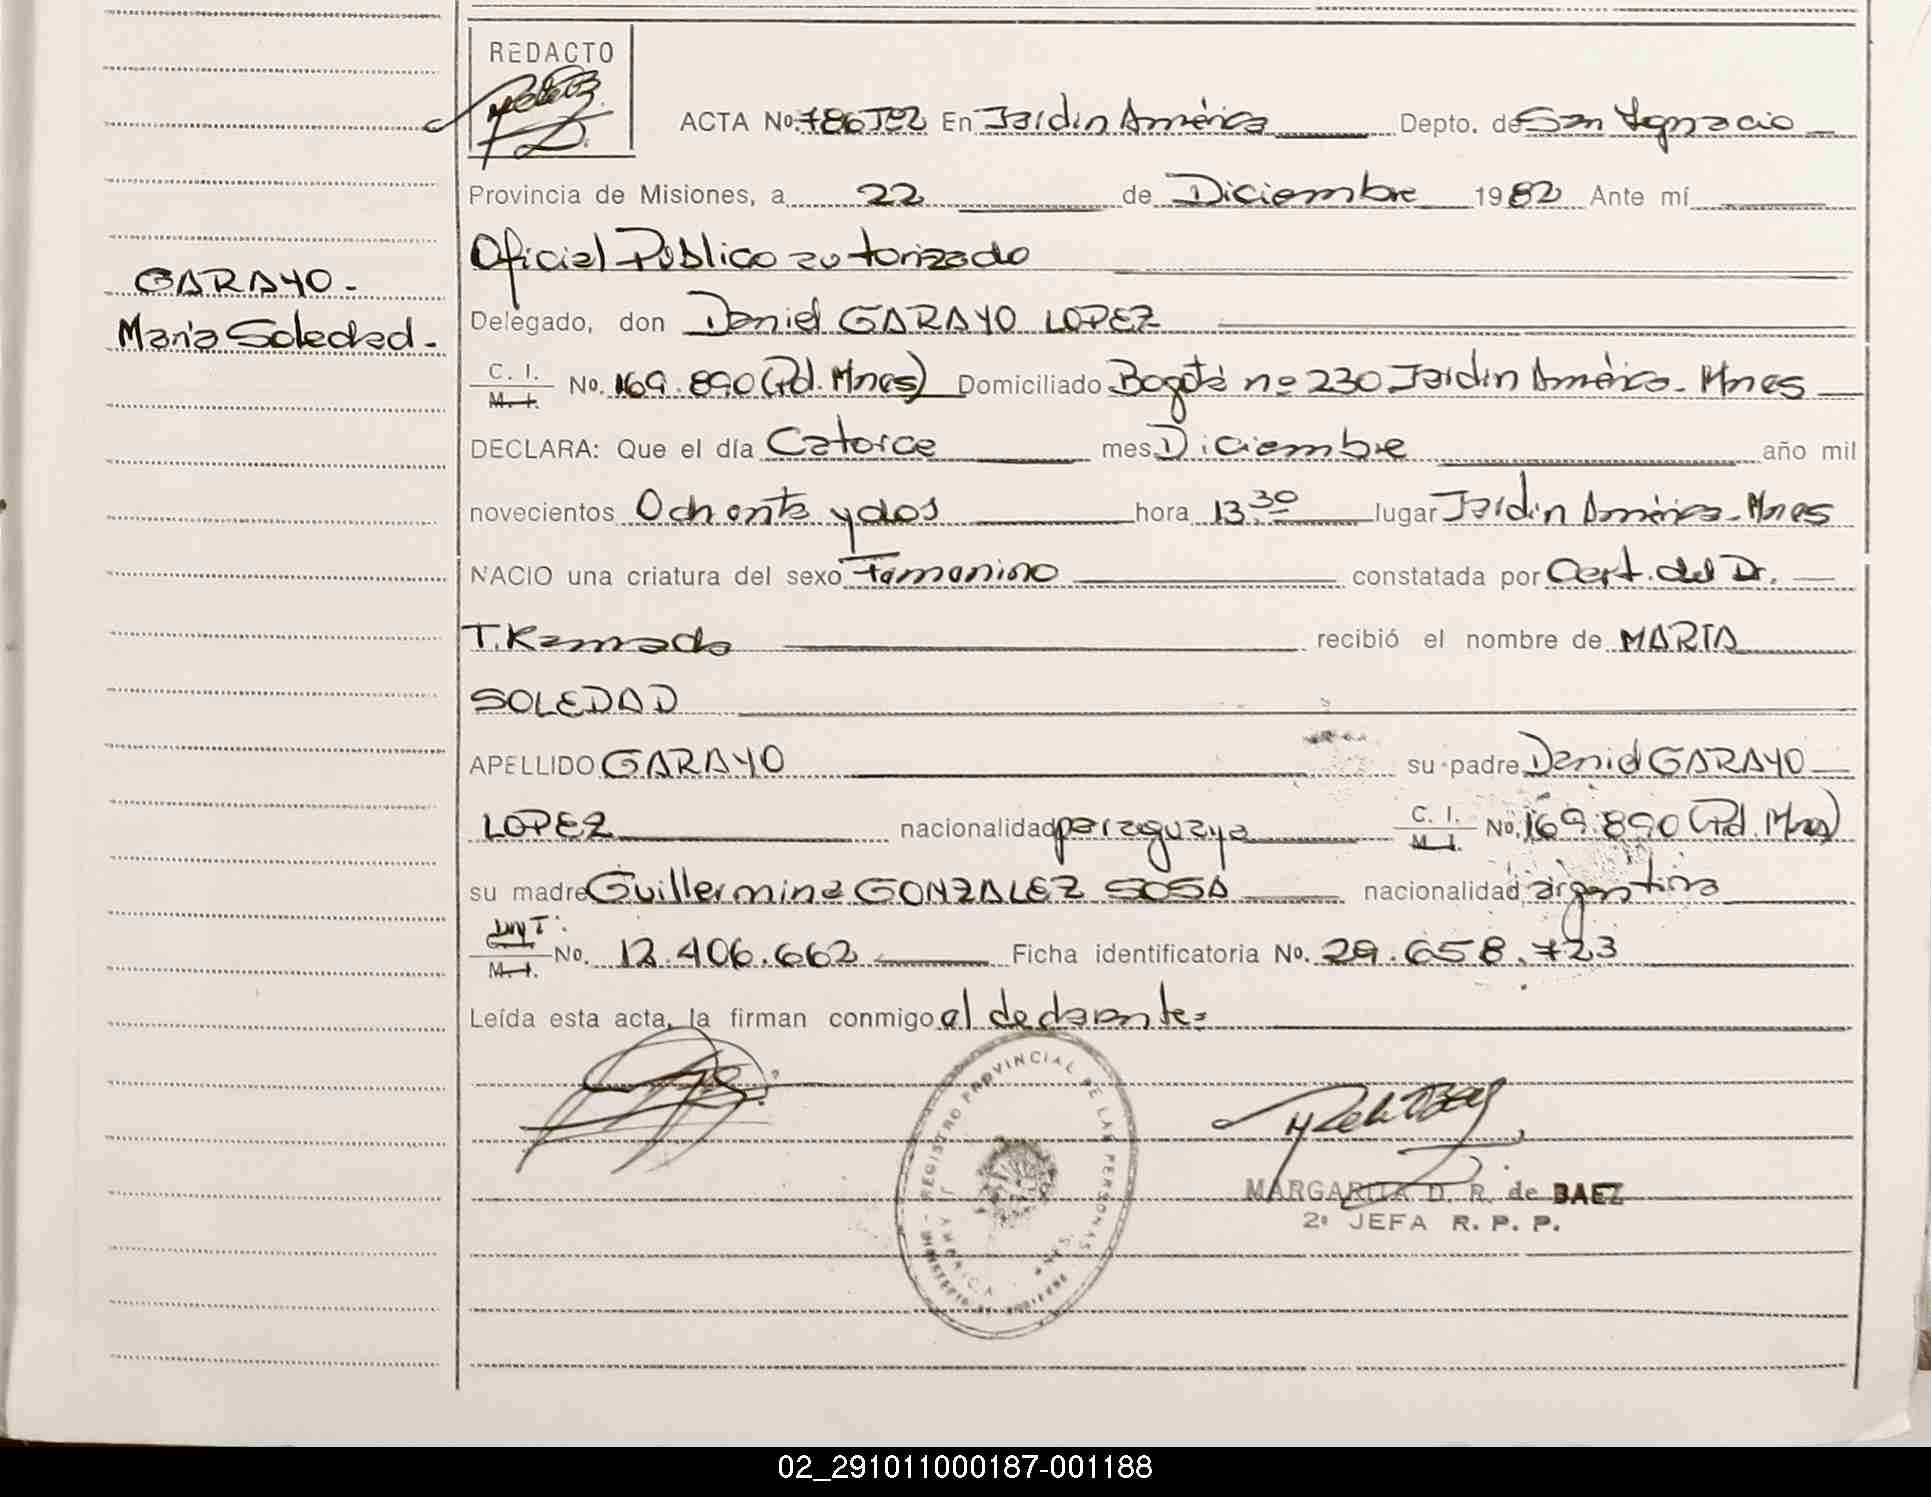 REDACTO
ACTA No. 786 T°2 En Jardín América Depto. de San Ignacio
Provincia de Misiones, a 22 de Diciembre 1982 Ante mí
Oficial Público autorizado
GARAYO-
Maria Soledad-
Delegado, don Daniel GARAYO LOPEZ
C. I. M. I. No. 169.890 (Pd. Mnes) Domiciliado Bogotá nº 230 Jardín América- Mnes
DECLARA: Que el día Catorce mes Diciembre año mil
novecientos Ochenta y dos hora 13.30 lugar Jardín América- Mnes
NACIO una criatura del sexo Femenino constatada por Cert. del Dr.
T. Kamada recibió el nombre de MARIA
SOLEDAD
APELLIDO GARAYO su padre Daniel GARAYO
LOPEZ nacionalidad paraguaya C. I. M. I. No. 169.890 (Pd. Mnes)
su madre Guillermina GONZALEZ SOSA nacionalidad argentina
M. I. No. 12.406.662 Ficha identificatoria No. 29.658.723
Leída esta acta, la firman conmigo el declarante=
REGISTRO PROVINCIAL DE LAS PERSONAS
MARGARITA D. R. de BAEZ
2ª JEFA R. P. P.
02_291011000187-001188